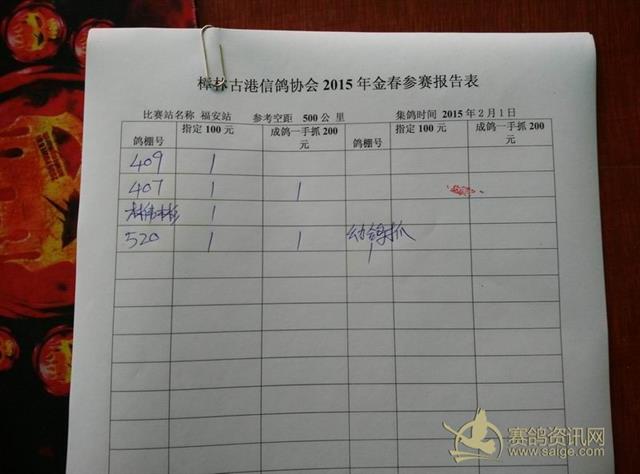 樟林古港信鸽协会 2015 年金春参赛报告表
比赛站名称 福安站 参考空距 500 公 里 集鸽时间 2015 年 2 月 1 日
鸽棚号 指定 100 元 成鸽一手抓 200 元 鸽棚号 指定 100 元 成鸽一手抓 200 元
409 1
407 1 1
1
520 1 1 幼鸽抓
1
赛鸽资讯网
www.saige.com